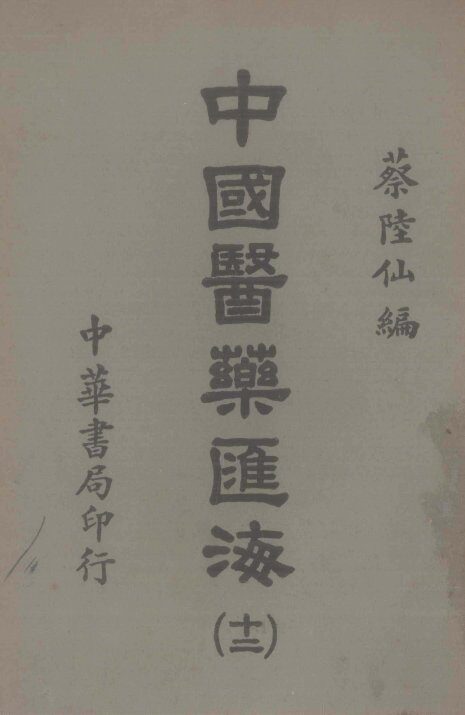 蔡陸仙編
中國醫藥匯海
(十二)
中華書局印行